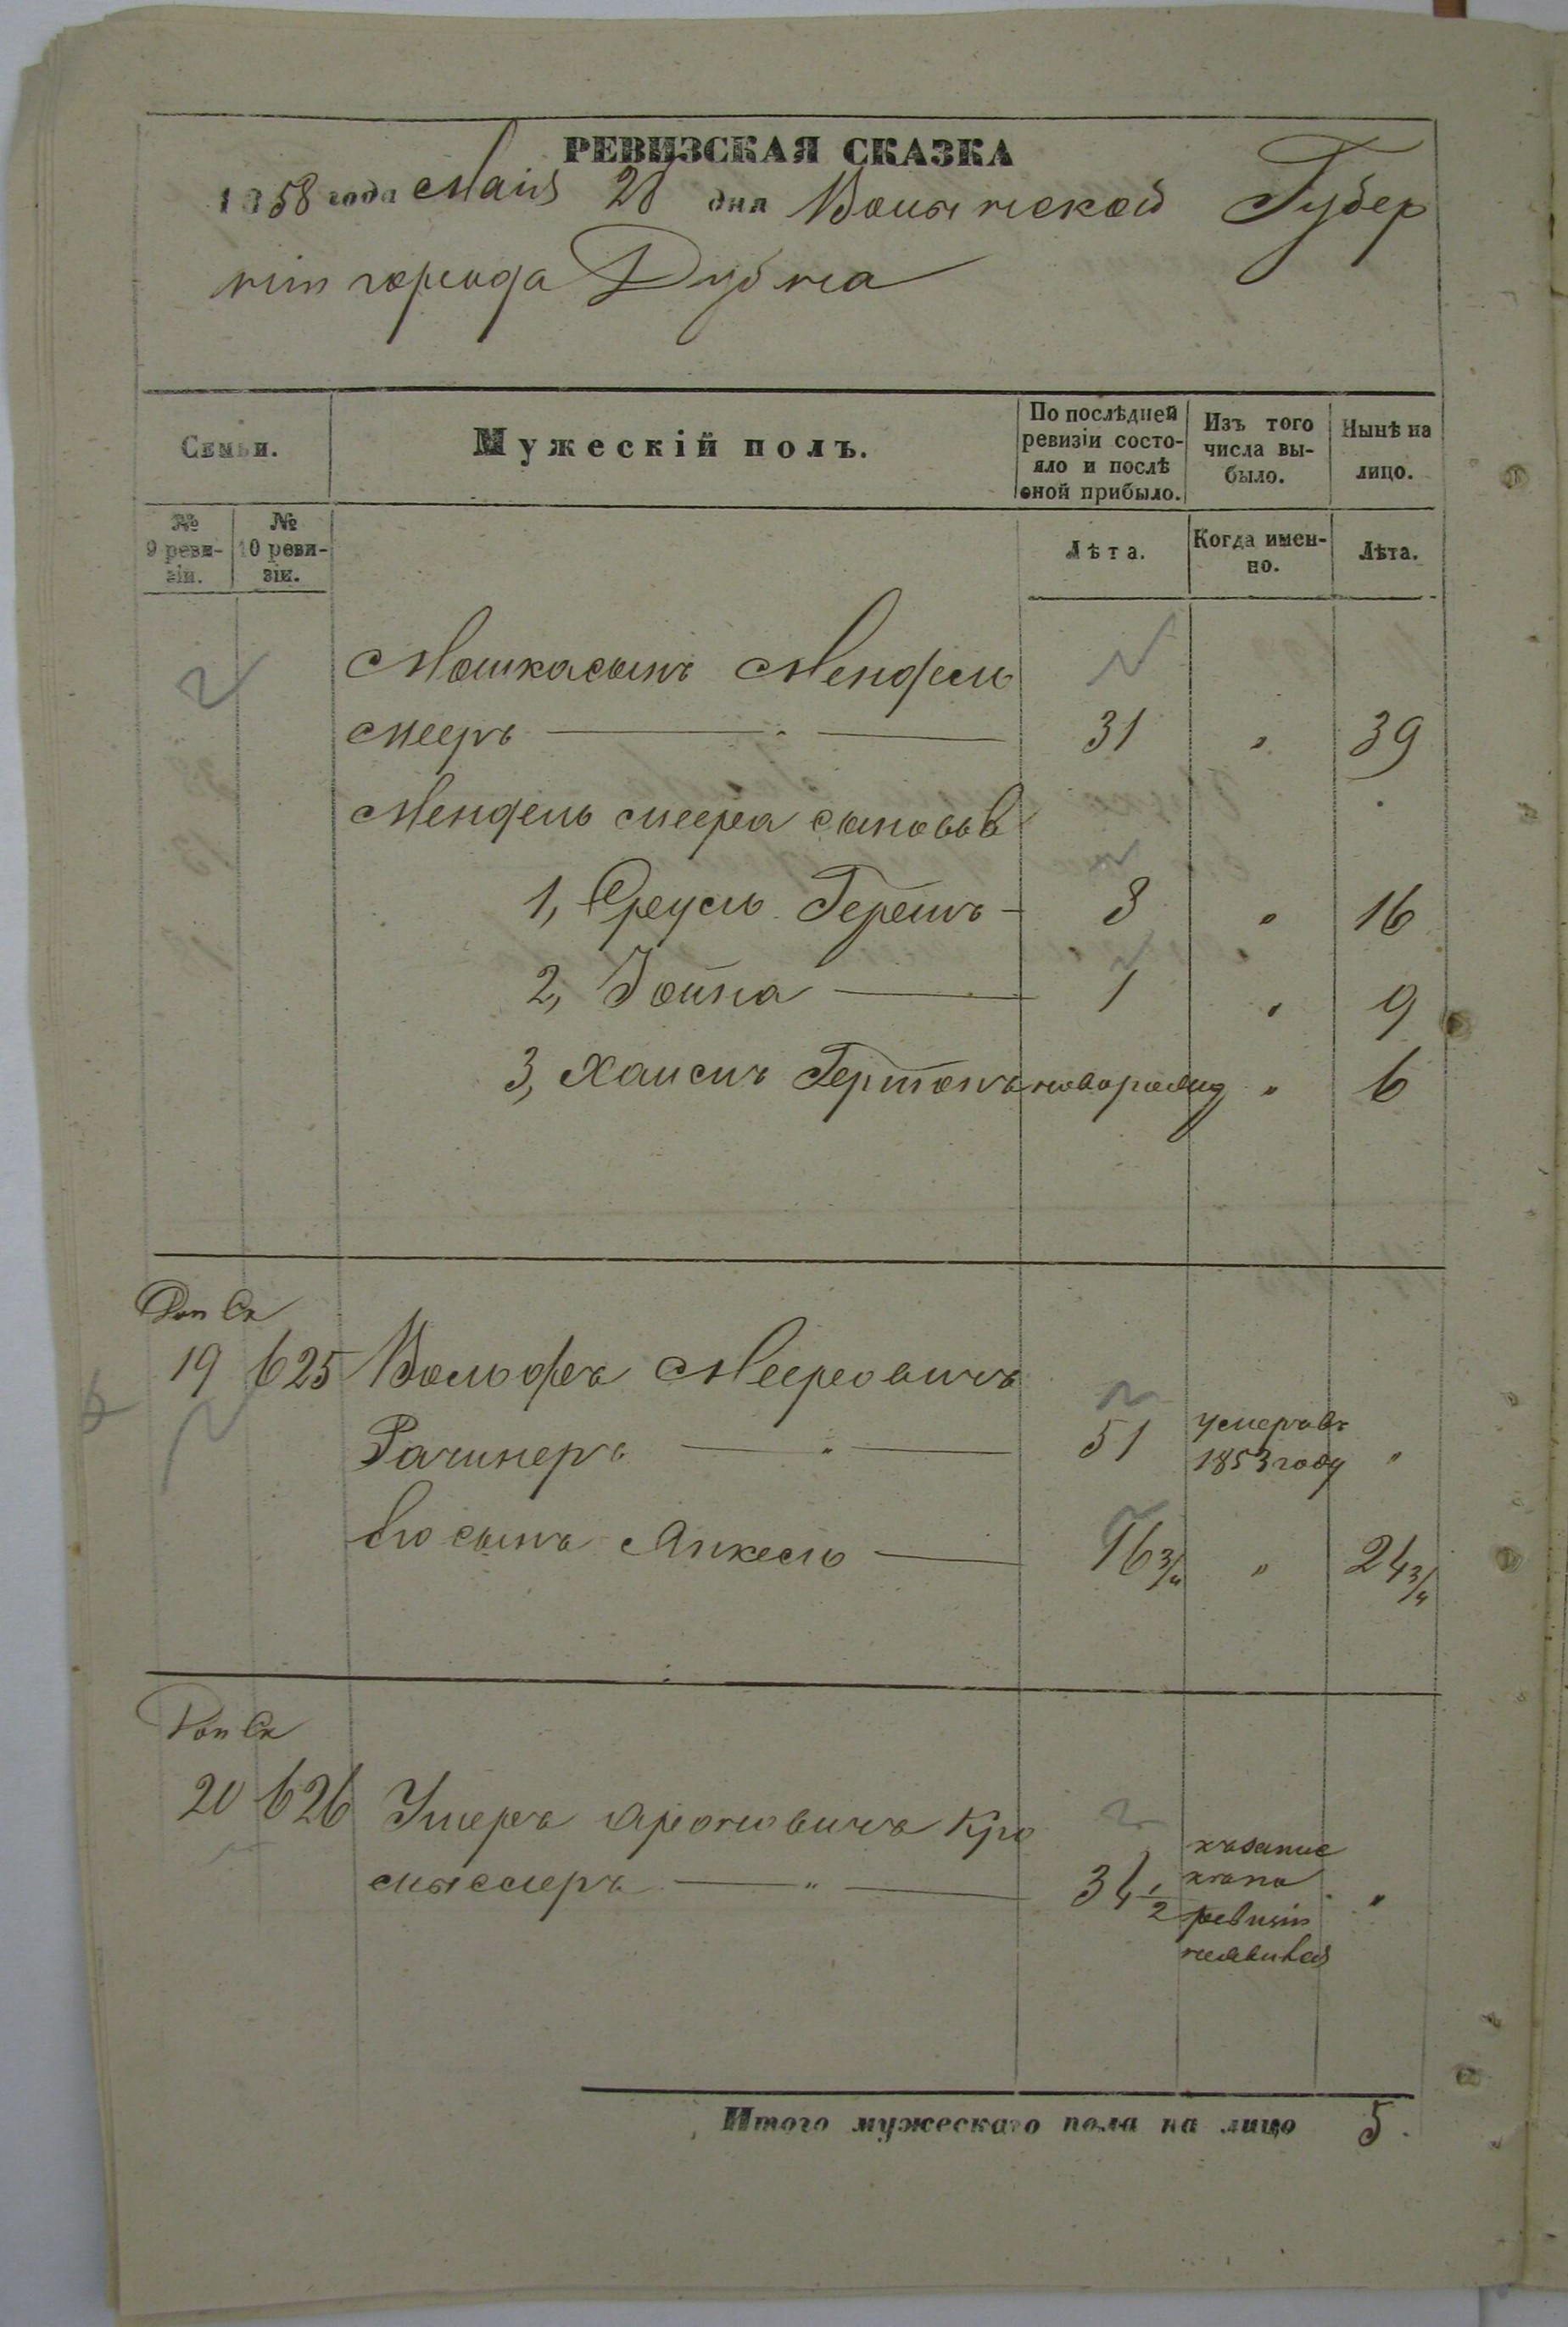 РЕВИЗСКАЯ СКАЗКА
1858 года Маія 28 дня Волынской Губер
ніи города Дубна
Семьи.
Мужескій полъ.
По послѣдней ревизіи состо-
яло и послѣ
оной прибыло.
Изъ того
числа вы-
было.
Нынѣ на
лицо.
№
9 реви-
зіи.
№
10 реви-
зіи.
Лѣта.
Когда имен-
но.
Лѣта.
Мошка сынъ Мендель
Мееръ — " — 31 " 39
Мендель Меера сыновья
1, Сруль Гершъ — 8 " 16
2, Іойна — 1 " 9
3, Хаимъ новорожд " 6
Доп Ск
19 625 Вольфъ Мееровичъ
Рачинеръ — " — 51 умеръ въ
1853 году "
Его сынъ Янкель — 16 3/4 " 24 3/4
Доп Ск
20 626 Ушеръ Ароновичъ Кро
— " — 34 1/2
ревизіи
неявился "
Итого мужескаго пола на лицо 5.